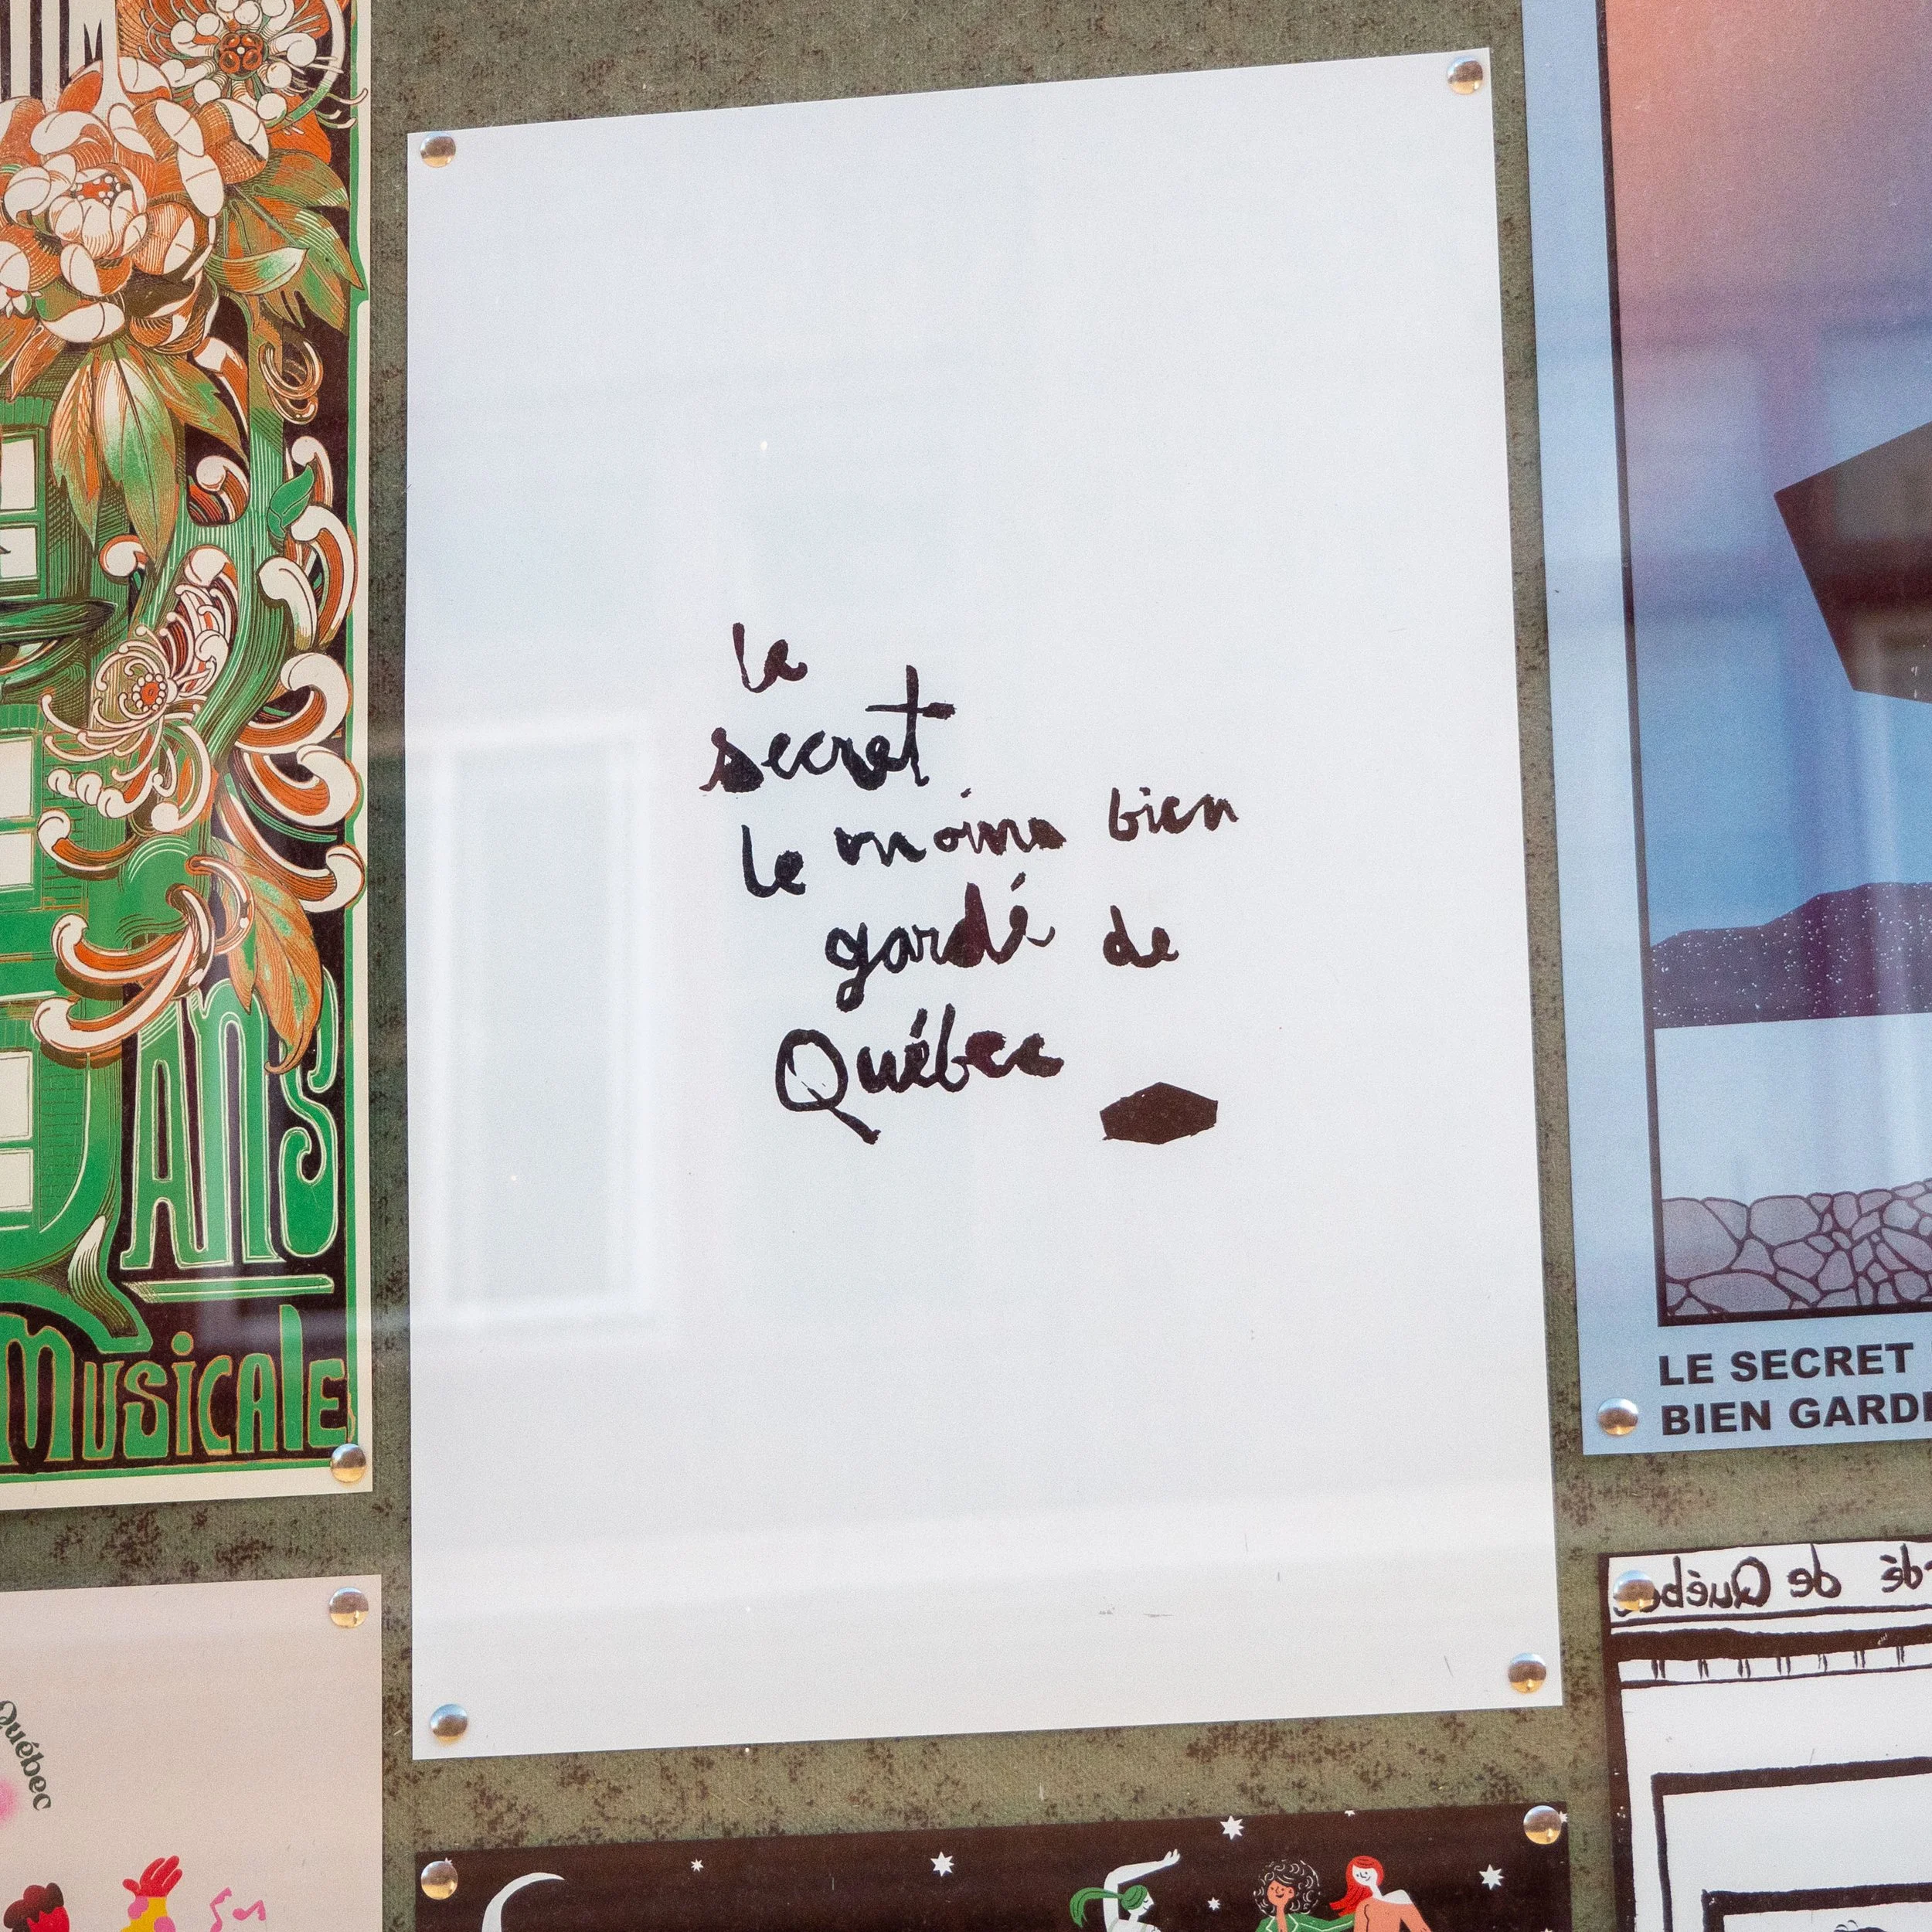 la
secret
le moins bien
gardé de
Québec
ANS
MUSICALE
LE SECRET
BIEN GARD
Québec
de Québec